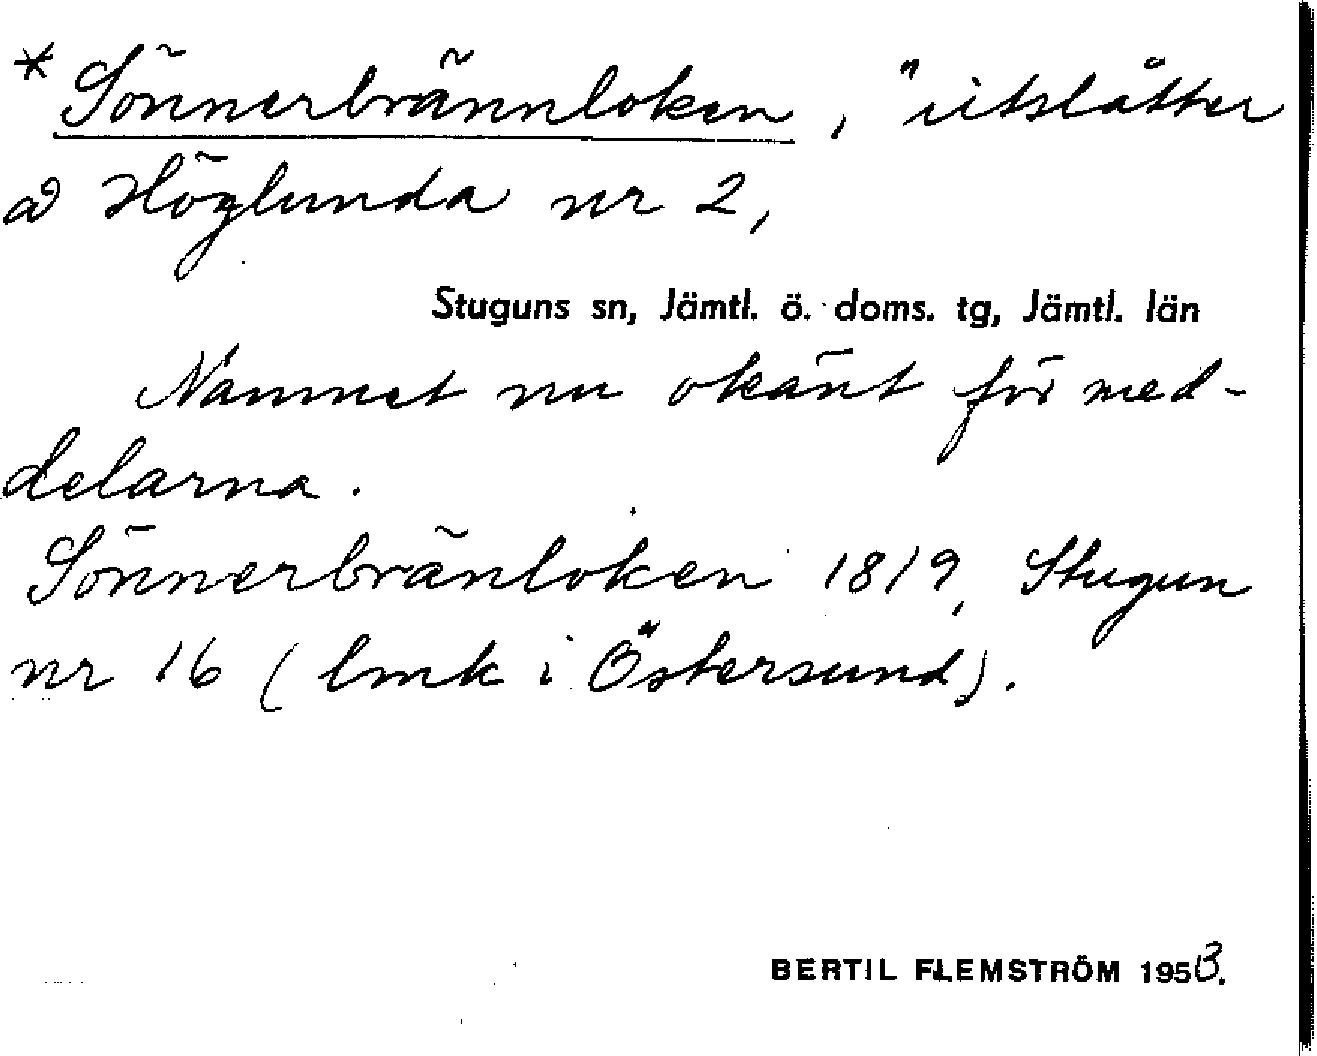 * Sönnerbrännloken, "utslåtter
å Höglunda nr 2,
Stuguns sn, Jämtl. ö. doms. tg, Jämtl. län
Namnet nu okänt för med-
delarna.
Sönnerbränloken 1819, Stugun
nr 16 (lmk i Östersund).
BERTIL FLEMSTRÖM 1953.